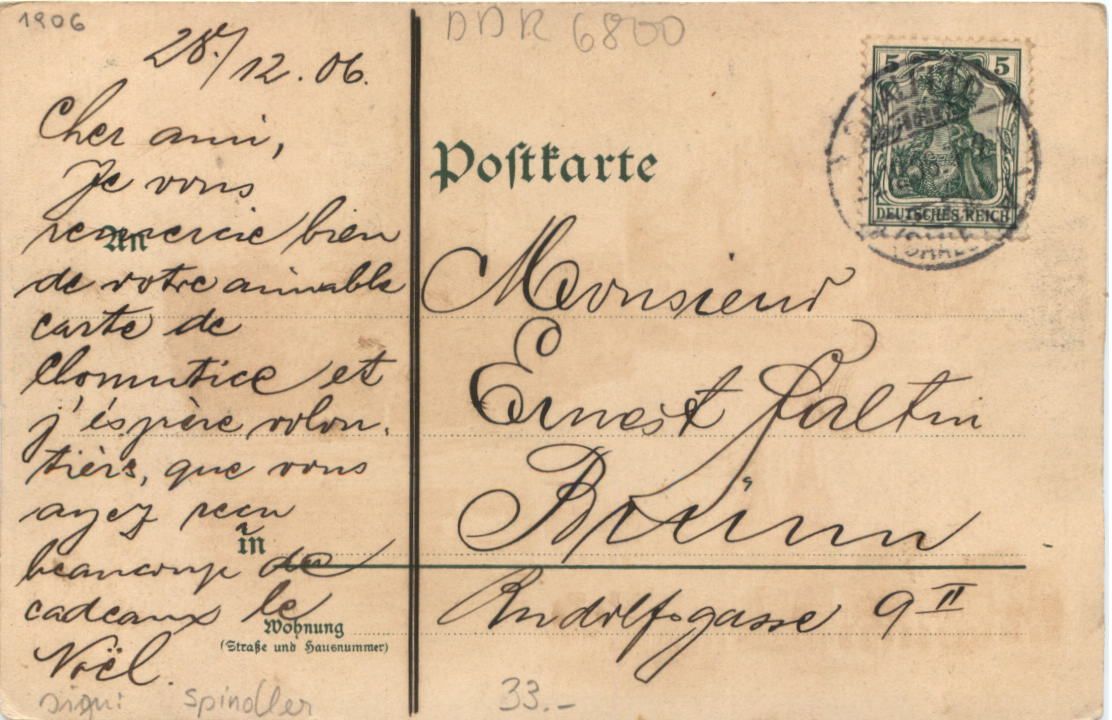 1906
DDR 6800
28./12.06.
Cher ami,
Je vous
remercie bien
de votre aimable
carte de
et
j'éspère volon,
tièrs, que vous
ayez recu
beaucoup de
cadeaux le
Noël.
An
in
Wohnung
(Straße und Hausnummer)
signi: Spindler
Postkarte
5 5
DEUTSCHES REICH
Monsieur
Ernest Faltin
Brünn
Rudolfsgasse 9 II
33.-